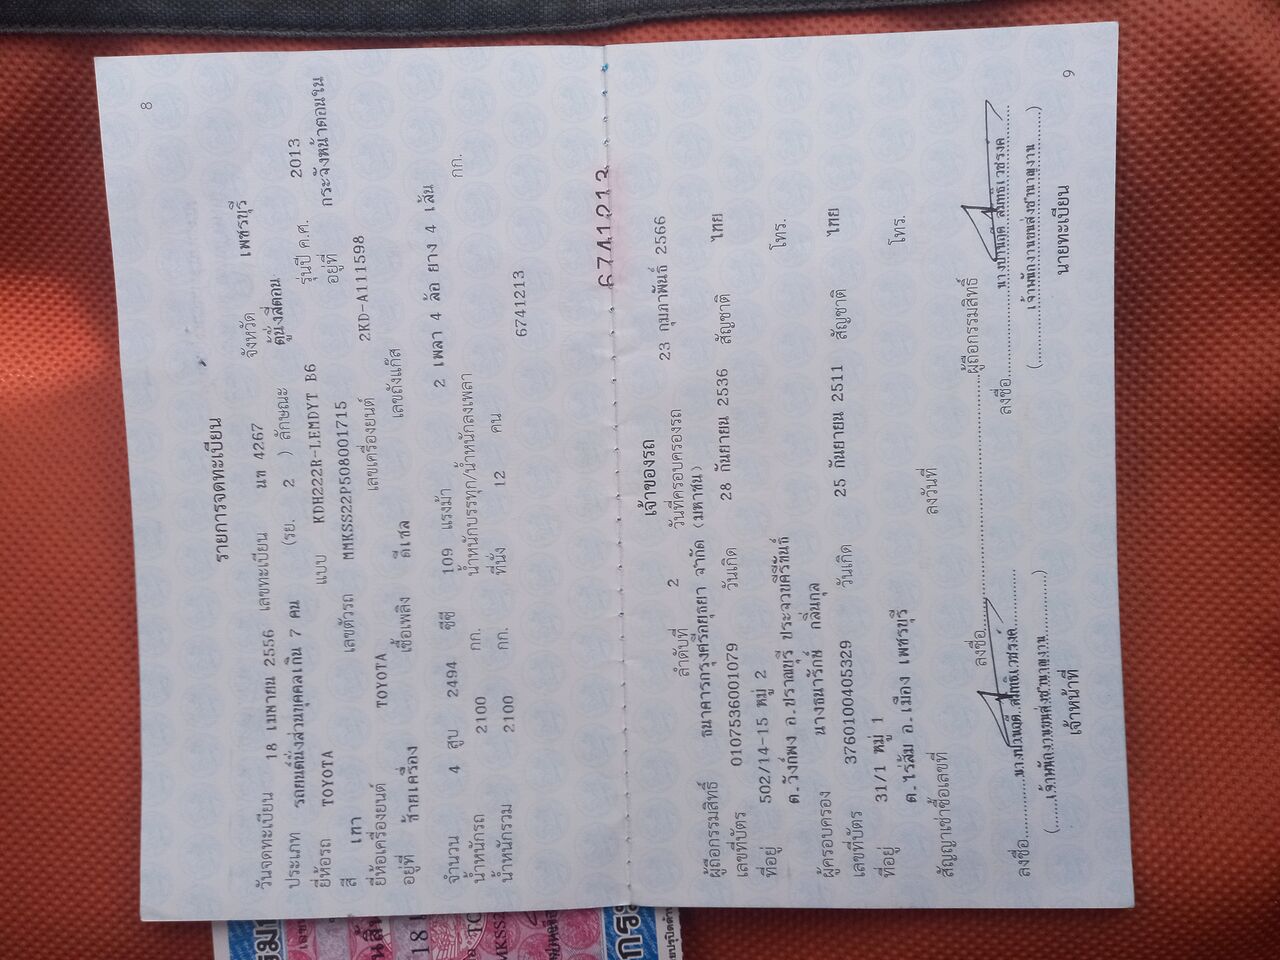 8
รายการจดทะเบียน
วันจดทะเบียน 18 เมษายน 2556 เลขทะเบียน นท 4267 จังหวัด เพชรบุรี
ประเภท รถยนต์นั่งส่วนบุคคลเกิน 7 คน (รย. 2 ) ลักษณะ ตู้นั่งสี่ตอน
ยี่ห้อรถ TOYOTA แบบ KDH222R-LEMDYT B6 รุ่นปี ค.ศ. 2013
สี เทา เลขตัวรถ MMKSS22P508001715 อยู่ที่ กระจังหน้าตอนใน
ยี่ห้อเครื่องยนต์ TOYOTA เลขเครื่องยนต์ 2KD-A111598
อยู่ที่ ซ้ายเครื่อง เชื้อเพลิง ดีเซล เลขถังแก๊ส
จำนวน 4 สูบ 2494 ซีซี 109 แรงม้า 2 เพลา 4 ล้อ ยาง 4 เส้น
น้ำหนักรถ 2100 กก. น้ำหนักบรรทุก/น้ำหนักลงเพลา กก.
น้ำหนักรวม 2100 กก. ที่นั่ง 12 คน
6741213
6741213
เจ้าของรถ
ลำดับที่ 2 วันที่ครอบครองรถ 23 กุมภาพันธ์ 2566
ผู้ถือกรรมสิทธิ์ ธนาคารกรุงศรีอยุธยา จำกัด (มหาชน)
เลขที่บัตร 0107536001079 วันเกิด 28 กันยายน 2536 สัญชาติ ไทย
ที่อยู่ 502/14-15 หมู่ 2 โทร.
ต.วังก์พง อ.ปราณบุรี ประจวบคีรีขันธ์
ผู้ครอบครอง นางธนารักษ์ กลิ่นกุล
เลขที่บัตร 3760100405329 วันเกิด 25 กันยายน 2511 สัญชาติ ไทย
ที่อยู่ 31/1 หมู่ 1 โทร.
ต.ไร่ส้ม อ.เมือง เพชรบุรี
สัญญาเช่าซื้อเลขที่ ลงวันที่
ลงชื่อ ผู้ถือกรรมสิทธิ์
ลงชื่อ ลงชื่อ
(เจ้าพนักงานขนส่งชำนาญงาน) (เจ้าพนักงานขนส่งชำนาญงาน)
เจ้าหน้าที่ นายทะเบียน
9
18